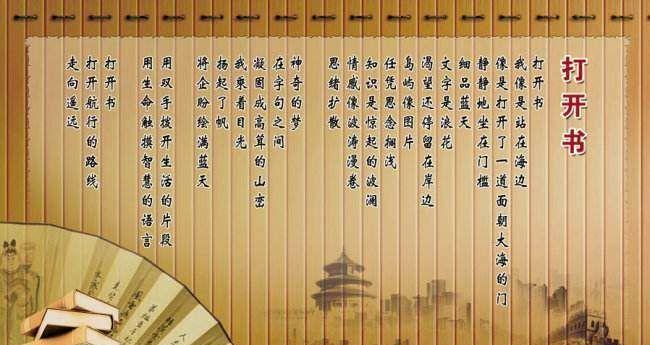 打开书
打开书
我像是站在海边
像是打开了一道面朝大海的门
静静地坐在门槛
细品蓝天
文字是浪花
渴望还停留在岸边
岛屿像图片
任凭思念搁浅
知识是惊起的波澜
情感像波涛漫卷
思绪扩散
神奇的梦
在字句之间
凝固成高耸的山峦
我乘着目光
扬起了帆
将企盼绘满蓝天
用双手拨开生活的片段
用生命触摸智慧的语言
打开书
打开航行的路线
走向遥远